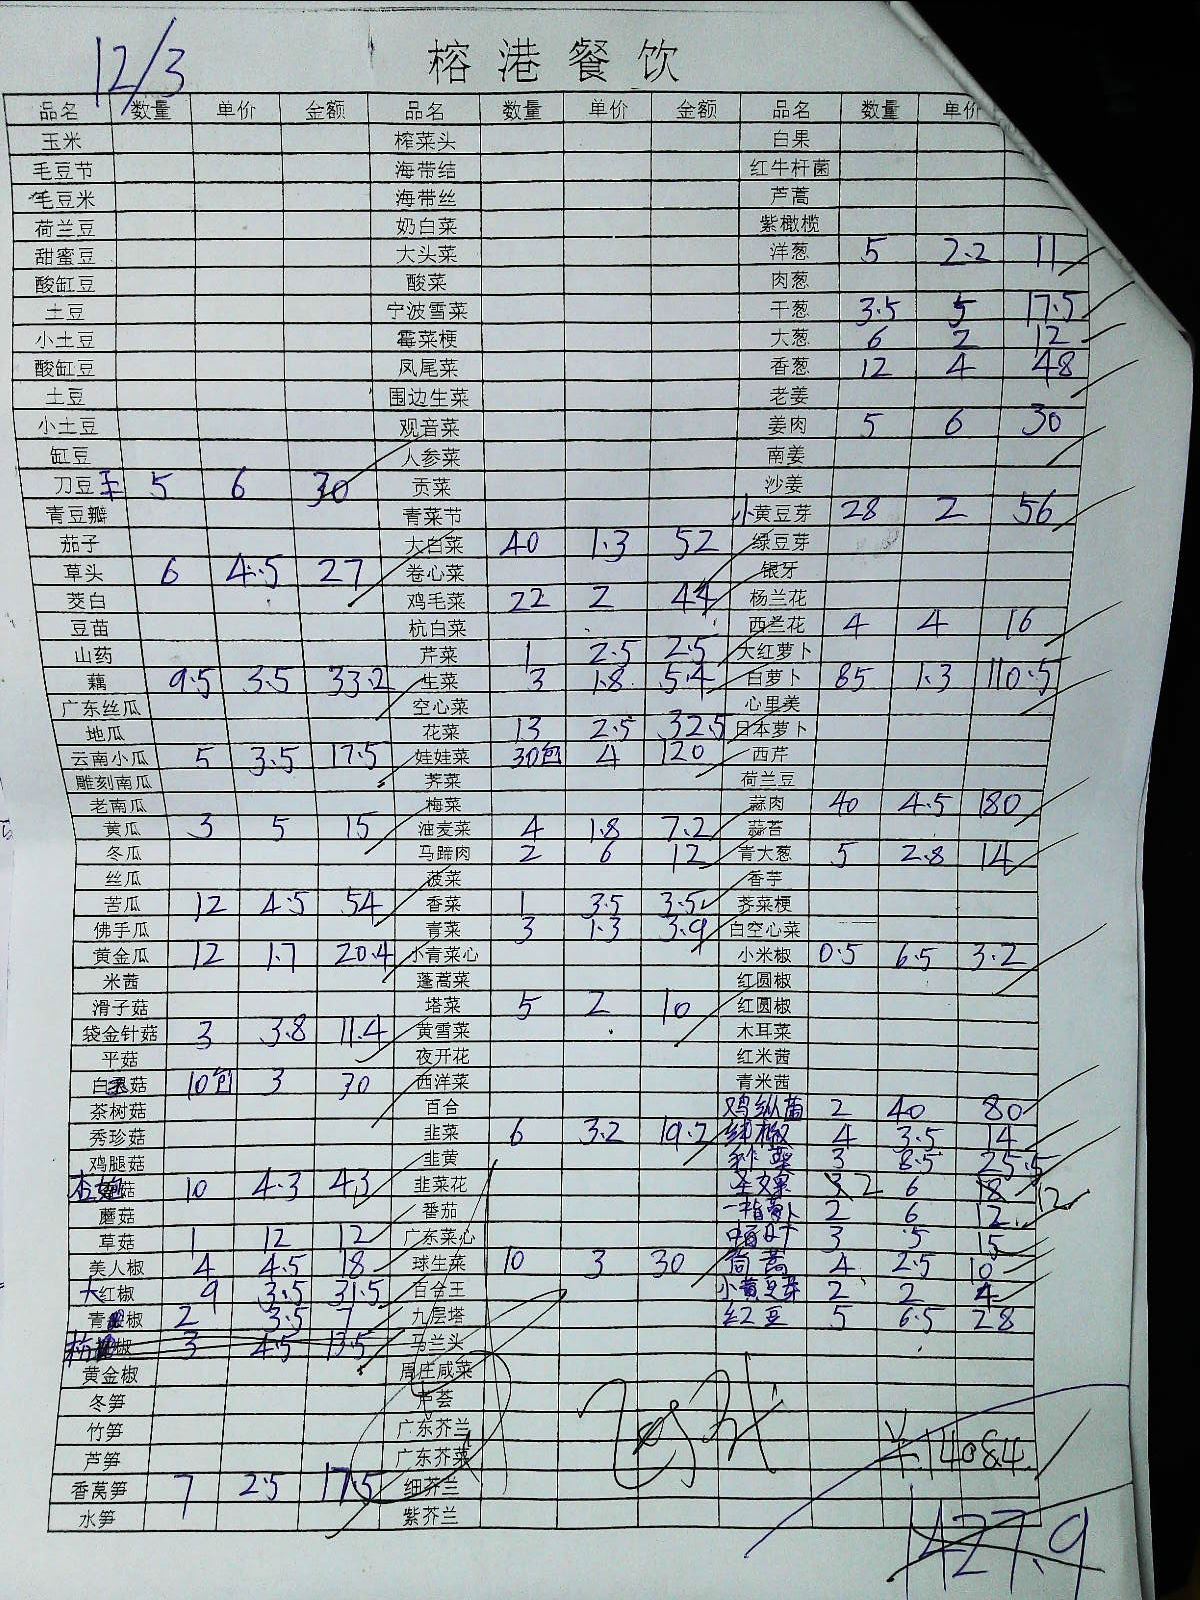 12/3
榕港餐饮
品名 数量 单价 金额 品名 数量 单价 金额 品名 数量 单价
玉米 榨菜头 白果
毛豆节 海带结 红牛杆菌
毛豆米 海带丝 芦蒿
荷兰豆 奶白菜 紫橄榄
甜蜜豆 大头菜 洋葱 5 2.2 11
酸缸豆 酸菜 肉葱
土豆 宁波雪菜 干葱 3.5 5 17.5
小土豆 霉菜梗 大葱 6 2 12
酸缸豆 凤尾菜 香葱 12 4 48
土豆 围边生菜 老姜
小土豆 观音菜 姜肉 5 6 30
缸豆 人参菜 南姜
刀豆 5 6 30 贡菜 沙姜
青豆瓣 青菜节 小黄豆芽 28 2 56
茄子 大白菜 40 1.3 52 绿豆芽
草头 6 4.5 27 卷心菜 银牙
茭白 鸡毛菜 22 2 44 杨兰花
豆苗 杭白菜 西兰花 4 4 16
山药 芹菜 1 2.5 2.5 大红萝卜
藕 9.5 3.5 33.2 生菜 3 1.8 5.4 白萝卜 85 1.3 110.5
广东丝瓜 空心菜 心里美
地瓜 花菜 13 2.5 32.5 日本萝卜
云南小瓜 5 3.5 17.5 娃娃菜 30包 4 120 西芹
雕刻南瓜 荠菜 荷兰豆
老南瓜 梅菜 蒜肉 40 4.5 180
黄瓜 3 5 15 油麦菜 4 1.8 7.2 蒜苔
冬瓜 马蹄肉 2 6 12 青大葱 5 2.8 14
丝瓜 菠菜 香芋
苦瓜 12 4.5 54 香菜 1 3.5 3.5 荠菜梗
佛手瓜 青菜 3 1.3 3.9 白空心菜
黄金瓜 12 1.7 20.4 小青菜心 小米椒 0.5 6.5 3.2
米茜 蓬蒿菜 红圆椒
滑子菇 塔菜 5 2 10 红圆椒
袋金针菇 3 3.8 11.4 黄雪菜 木耳菜
平菇 夜开花 红米茜
白灵菇 10包 3 30 西洋菜 青米茜
茶树菇 百合 鸡枞菌 2 40 80
秀珍菇 韭菜 6 3.2 19.2 红椒 4 3.5 14
鸡腿菇 韭黄 3 8.5 25.5
菇 10 4.3 43 韭菜花 圣女果 2 6 18 12
蘑菇 番茄 2 6 12
草菇 1 12 12 广东菜心 3 5 15
美人椒 4 4.5 18 球生菜 10 3 30 茼蒿 4 2.5 10
大红椒 9 3.5 31.5 百合王 小黄豆芽 2 2 4
青椒 2 3.5 7 九层塔 红豆 5 6.5 28
椒 3 4.5 13.5 马兰头
黄金椒 周庄咸菜
冬笋 芦荟
竹笋 广东芥兰
芦笋 广东芥菜 ¥1408.4
香莴笋 7 2.5 17.5 细芥兰
水笋 紫芥兰
1427.9